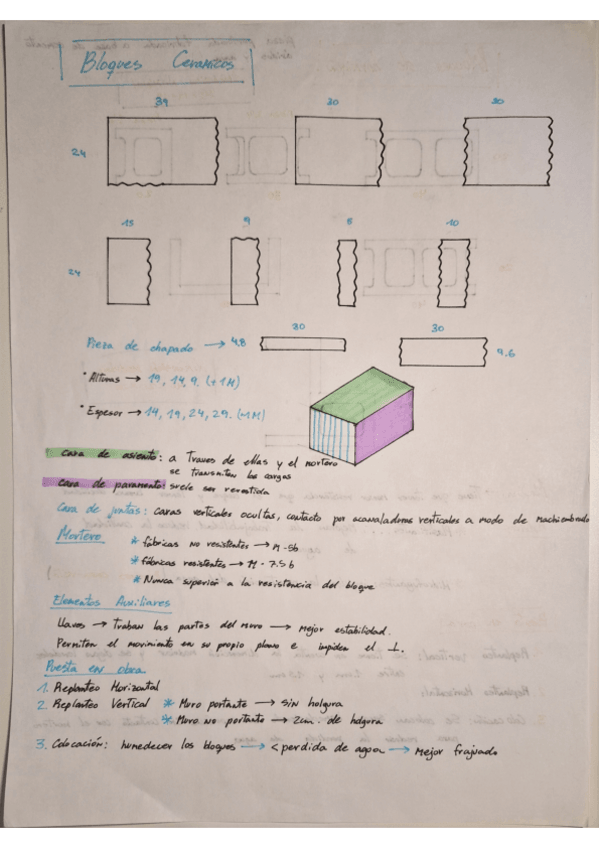 Bloques Ceramicos
39 30 30
24
15 9 5 10
24
30 30
Pieza de chapado → 4.8
9.6
* Alturas → 19, 14, 9. (+1M)
* Espesor → 14, 19, 24, 29. (-1M)
Cara de asiento: a Traves de ellas y el mortero
se transmiten las cargas
Cara de paramento: suele ser revestida
Cara de juntas: caras verticales ocultas, contacto por acanaladuras verticales a modo de machiembrado
Mortero
* fábricas no resistentes → M-5b
* fábricas resistentes → M-7.5b
* Nunca superior a la resistencia del bloque
Elementos Auxiliares
Llaves → Traban las partes del muro → mejor estabilidad.
Permiten el movimiento en su propio plano e impiden el ⊥.
Puesta en obra
1. Replanteo Horizontal
2. Replanteo Vertical * Muro portante → sin holgura
* Muro no portante → 2cm. de holgura
3. Colocación: humedecer los bloques → < perdida de agua → mejor fraguado